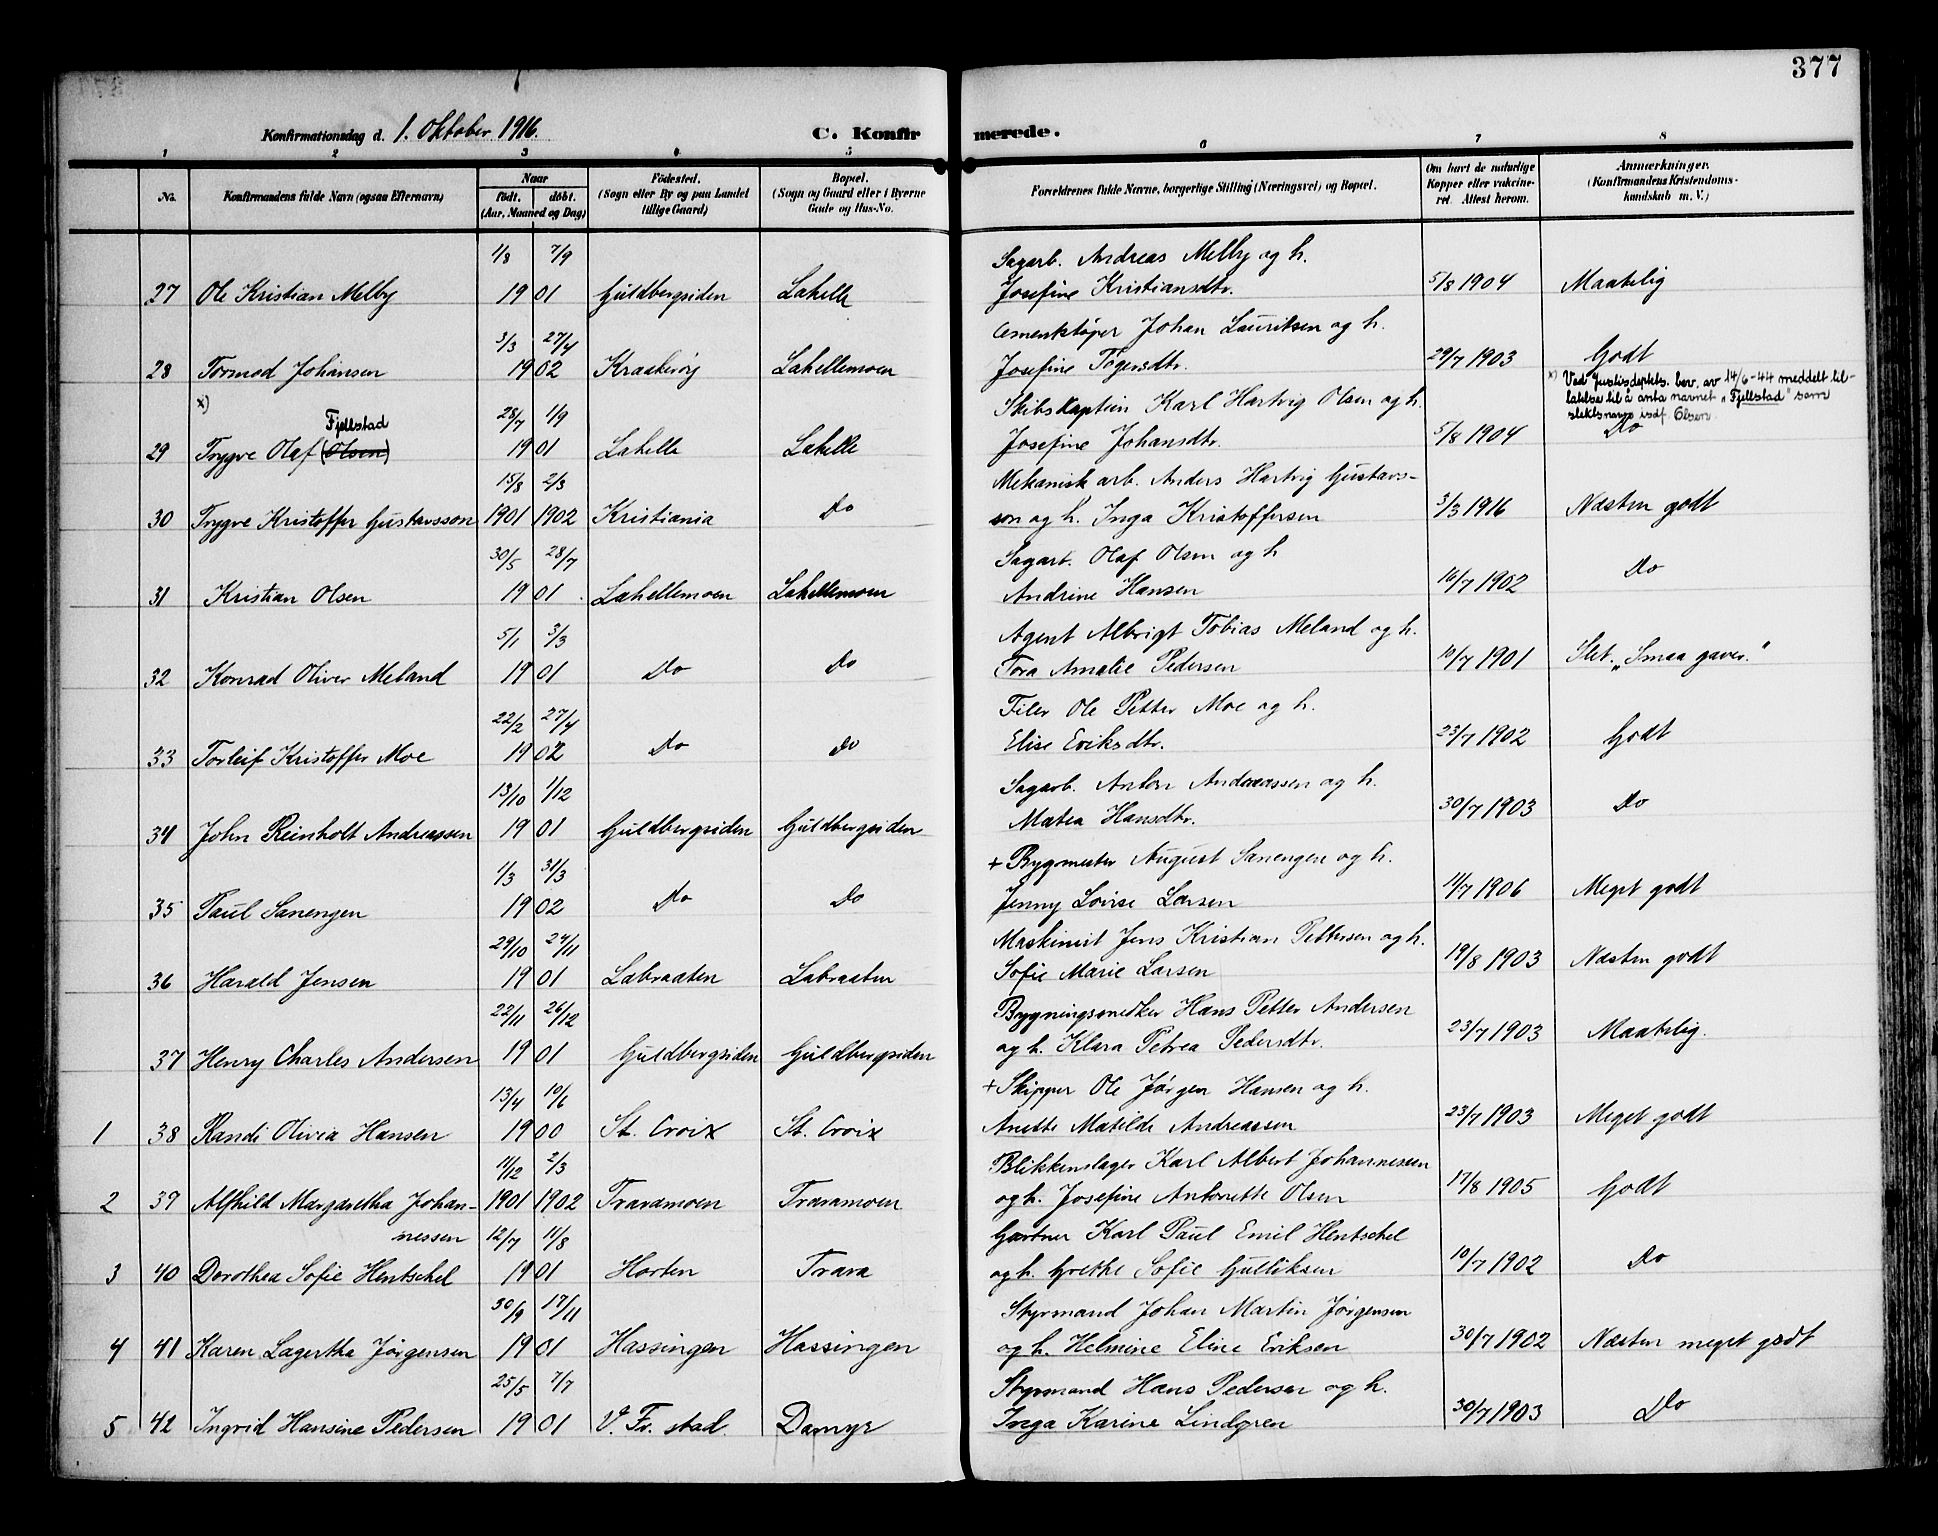 377
Konfirmationsdag d. 1. Oktober 1916.
C. Konfirmerede.
1 2 3 4 5 6 7 8
No. Konfirmandens fulde Navn (ogsaa Efternavn) Naar født. døbt. (Aar, Maaned og Dag) Fødested. (Sogn eller By og paa Landet tillige Gaard) Bopæl. (Sogn og Gaard eller i Byerne Gade og Hus-No. Forældrenes fulde Navne, borgerlige Stilling (Næringsvei) og Bopæl. Om havt de naturlige Kopper eller vakcineret. Attest herom. Anmærkninger. (Konfirmandens Kristendomskundskab m. V.)
1/8 7/9 Sagarb. Andreas Melby og h.
27 Ole Kristian Melby 1901 Guldbergsiden Lahelle Josefine Kristiansdtr. 5/8 1904 Maatelig
3/3 27/4 Cementstøper Johan Lauritsen og h.
28 Tormod Johansen 1902 Kraakerøy Lahellemoen Josefine Tøgersdtr. 29/7 1903 Godt
x) Ved Justisdeptets. bev. av 14/6-44 meddelt til-
latelse til å anta navnet „Fjellstad" som
slektsnavn isdf. Olsen.
x) Fjellstad 28/7 1/9 Skibskaptein Karl Hartvig Olsen og h.
29 Trygve Olaf (Olsen) 1901 Lahelle Lahelle Josefine Johansdtr. 5/8 1904 Do
15/8 2/3 Mekanisk arb. Anders Hartvig Gustavs-
30 Trygve Kristoffer Gustavsson 1901 1902 Kristiania Do son og h. Inga Kristoffersen 3/3 1916 Næsten godt
30/5 28/7 Sagarb. Olaf Olsen og h
31 Kristian Olsen 1901 Lahellemoen Lahellemoen Andrine Hansen 16/7 1902 Do
5/1 3/3 Agent Albrigt Tobias Meland og h.
32 Konrad Oliver Meland 1901 Do Do Tora Amalie Pedersen 10/7 1901 Slet. „Smaa gaver."
22/2 27/4 Filer Ole Petter Moe og h.
33 Torleif Kristoffer Moe 1902 Do Do Elise Eriksdtr. 23/7 1902 Godt
13/10 1/12 Sagarb. Anton Andreassen og h.
34 John Reinholt Andreassen 1901 Guldbergsiden Guldbergsiden Matea Hansdtr. 30/7 1903 Do
1/3 31/3 + Bygmester August Sanengen og h.
35 Paul Sanengen 1902 Do Do Jenny Lovise Larsen 11/7 1906 Meget godt
29/10 24/11 Maskinist Jens Kristian Pettersen og h.
36 Harald Jensen 1901 Labraaten Labraaten Sofie Marie Larsen 19/8 1903 Næsten godt
22/11 26/12 Bygningssnedker Hans Petter Andersen
37 Henry Charles Andersen 1901 Guldbergsiden Guldbergsiden og h. Klara Petrea Pedersdtr. 23/7 1903 Maatelig.
13/4 10/6 + Skipper Ole Jørgen Hansen og h.
1 38 Randi Olivia Hansen 1900 St. Croix St. Croix Anette Matilde Andreassen 23/7 1903 Meget godt
11/12 2/3 Blikkenslager Karl Albert Johannessen
2 39 Alfhild Margaretha Johan- 1901 1902 Traramoen Traramoen og h. Josefine Antonette Olsen 17/8 1905 Godt
nessen 12/7 11/8 Gartner Karl Paul Emil Hentschel
3 40 Dorothea Sofie Hentschel 1901 Horten Trara og h. Grethe Sofie Gulliksen 10/7 1902 Do
30/9 17/11 Styrmand Johan Martin Jørgensen
4 41 Karen Lagertha Jørgensen 1901 Hassingen Hassingen og h. Helmine Eline Eriksen 30/7 1902 Næsten meget godt
25/5 7/7 Styrmand Hans Pedersen og h.
5 42 Ingrid Hansine Pedersen 1901 V. Fr. stad. Damyr Inga Karine Lindgren 30/7 1903 Do